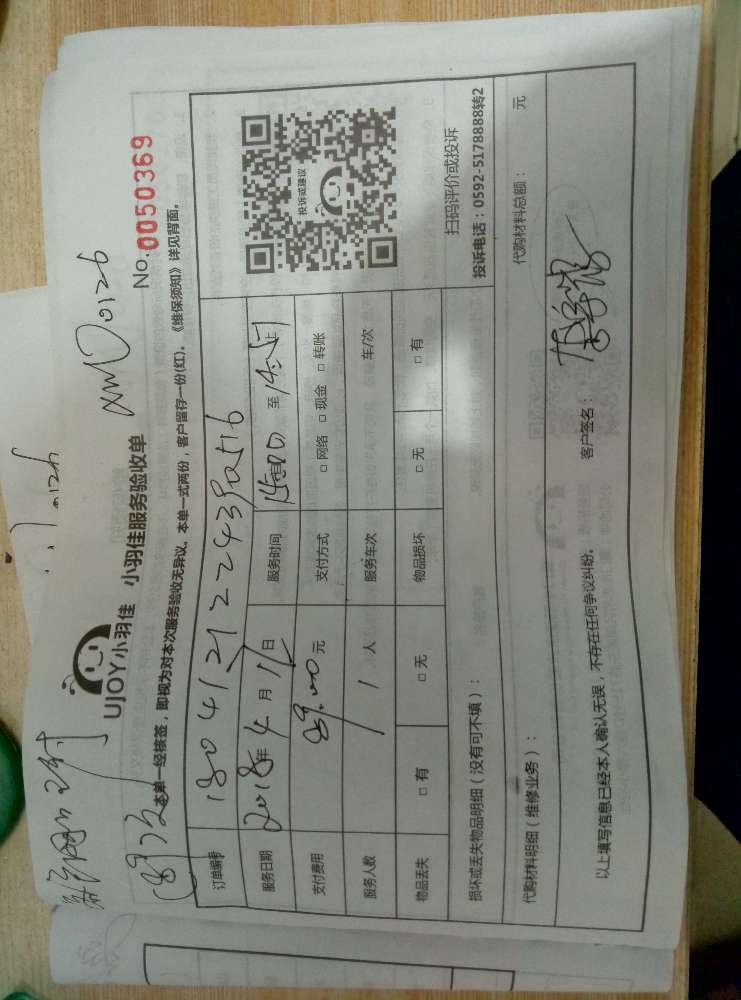 UJOY小羽佳 小羽佳服务验收单
No.0050369
本单一经核签，即视为对本次服务验收无异议。本单一式两份，客户留存一份(红)。《维保须知》详见背面。
订单编号
服务日期 2018年4月 日 服务时间 至
支付费用 89.00元 支付方式 □网络 □现金 □转账
服务人数 1人 服务车次 车/次
物品丢失 □有 □无 物品损坏 □无 □有
投诉或建议
扫码评价或投诉
投诉电话：0592-5178888转2
损坏或丢失物品明细（没有可不填）：
代购材料明细（维修业务）：
代购材料总额： 元
以上填写信息已经本人确认无误，不存在任何争议纠纷。
客户签名：